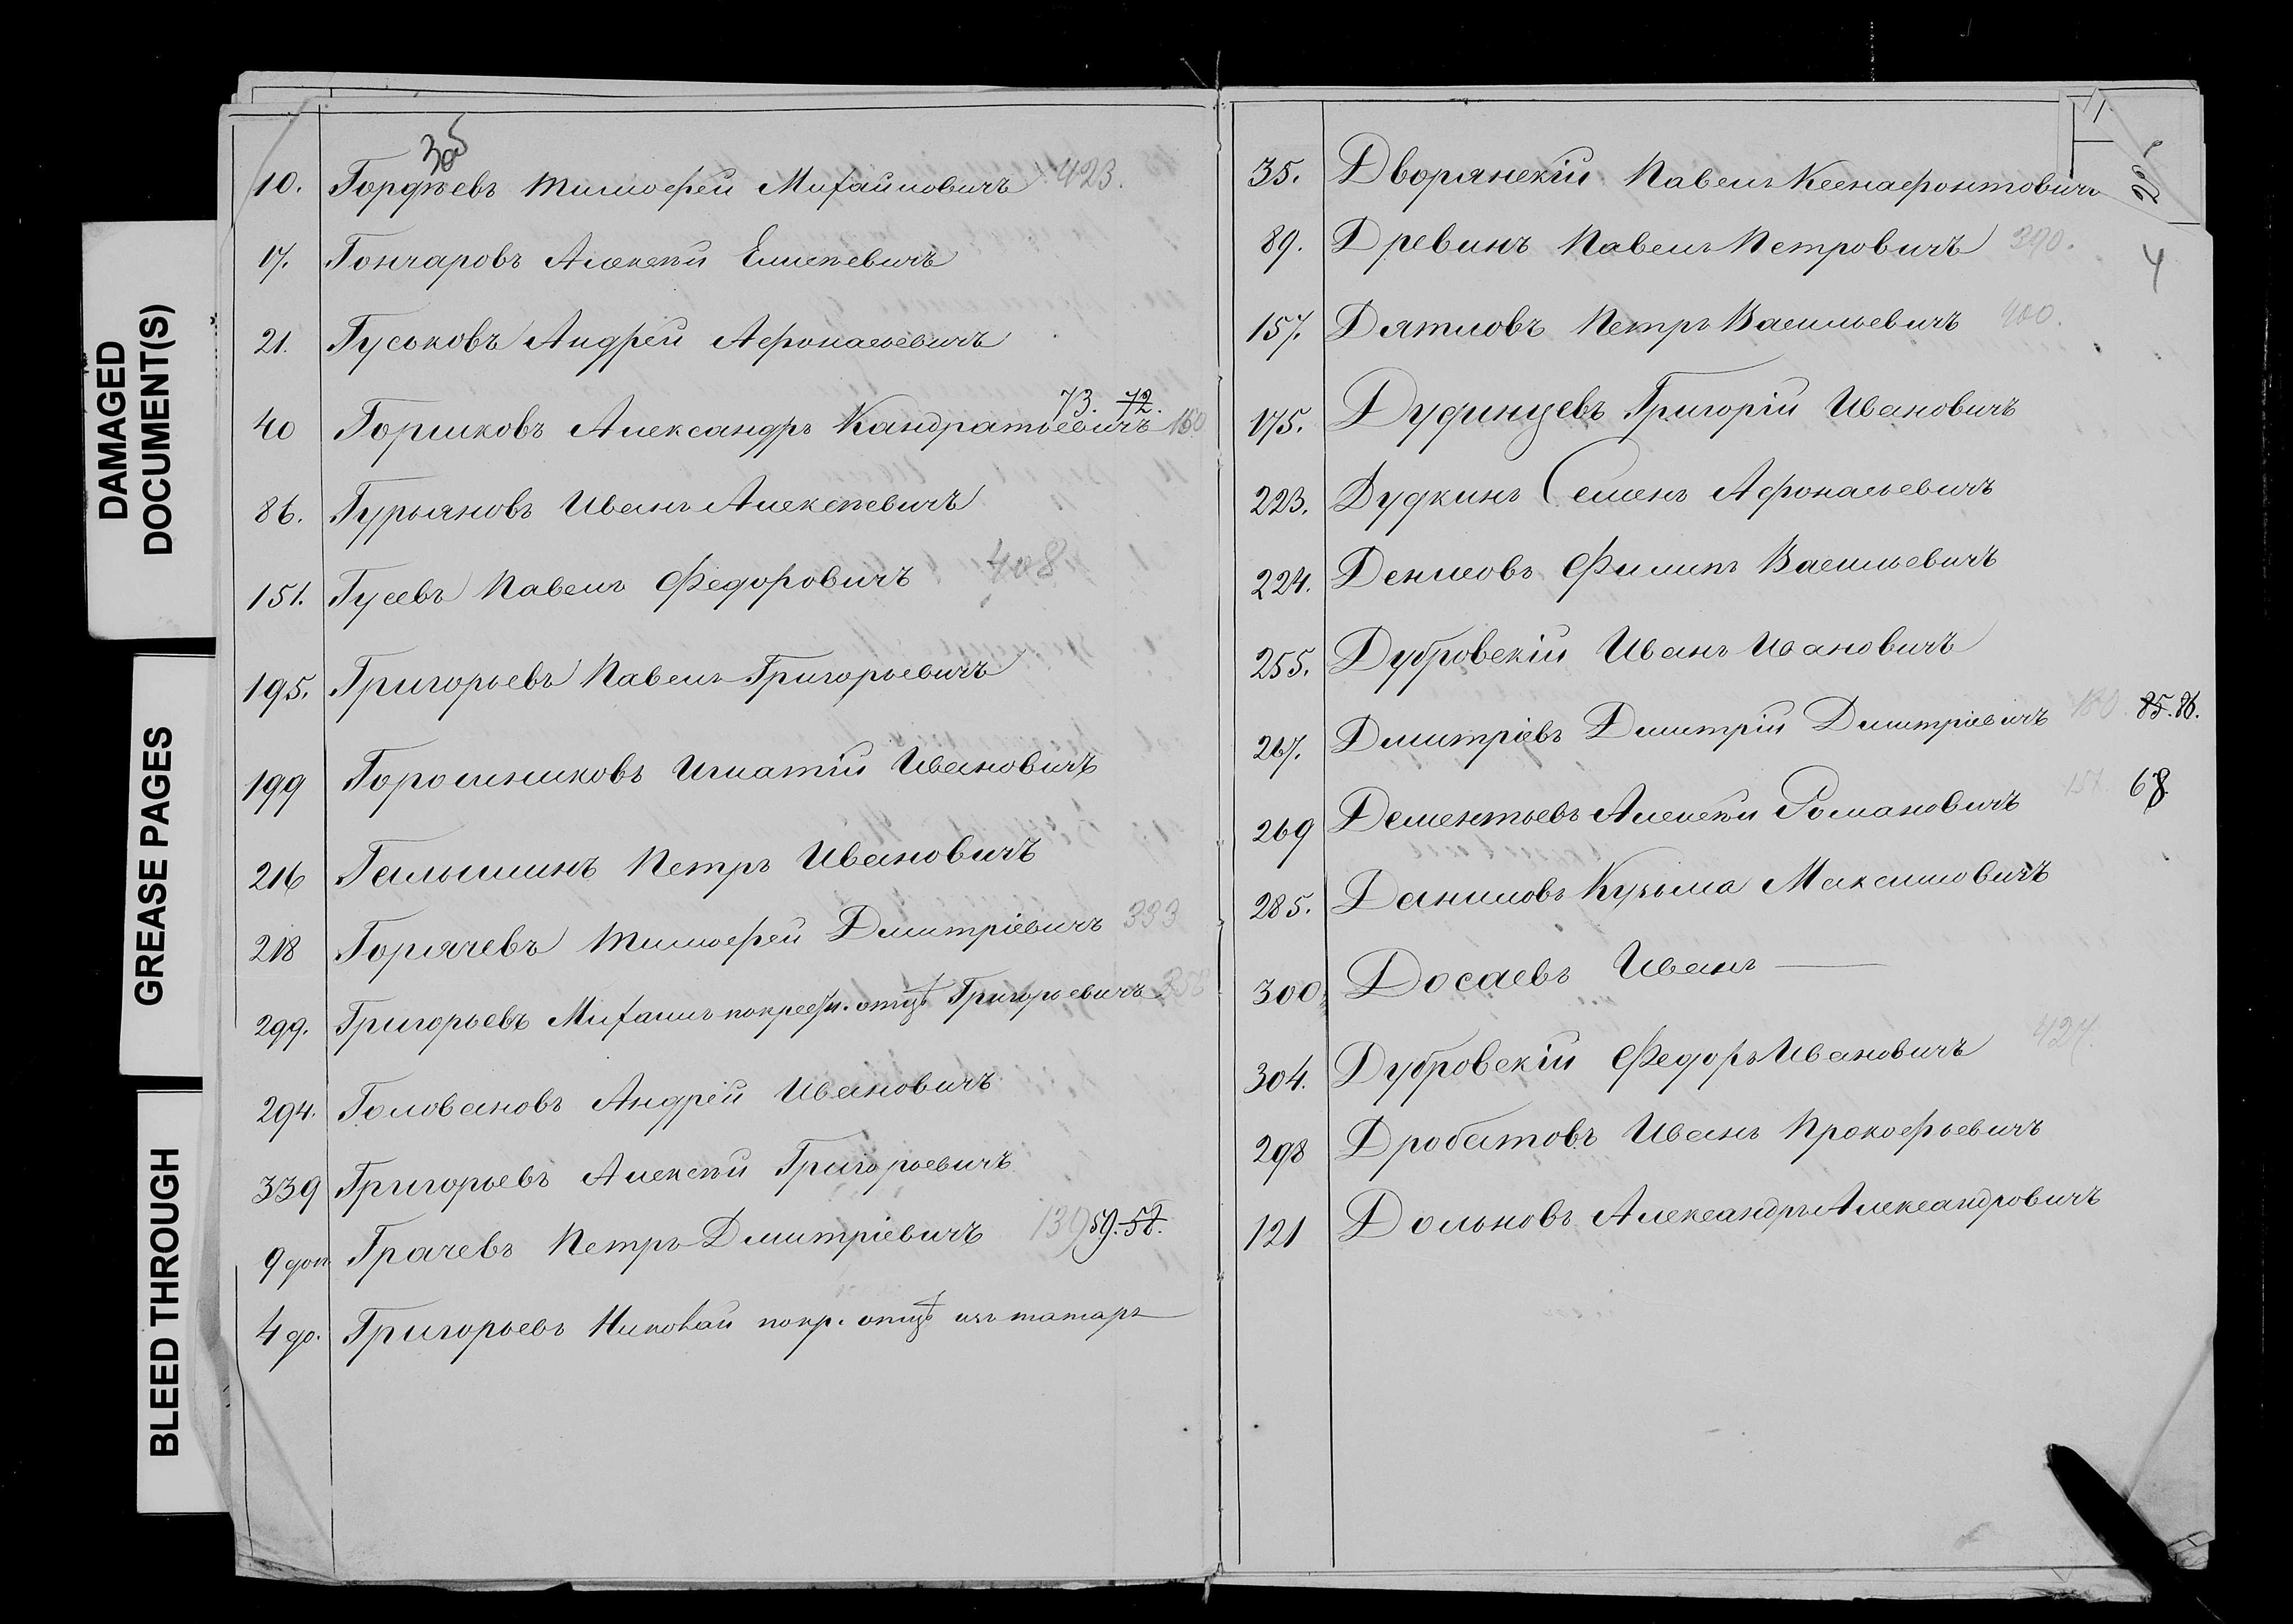 DAMAGED
DOCUMENT(S)
GREASE PAGES
BLEED THROUGH
10. Гордѣевъ Тимофей Михайловичъ 423.
17. Гончаровъ Алексѣй Елисѣевичъ
21. Гуськовъ Андрей Афонасьевичъ
73. 72.
40 Горшковъ Александръ Кандратьевичъ 160
86. Гурьяновъ Иванъ Алексѣевичъ
151. Гусевъ Павелъ Федоровичъ 408
195. Григорьевъ Павелъ Григорьевичъ
199 Горошниковъ Игнатій Ивановичъ
216 Галышинъ Петръ Ивановичъ
218 Горячевъ Тимофей Дмитріевичъ 333
299. Григорьевъ Михаилъ покресн. отцѣ Григорьевичъ 358
294. Головановъ Андрей Ивановичъ
339 Григорьевъ Алексѣй Григорьевичъ
9 доп Грачевъ Петръ Дмитріевичъ 139 59. 58.
4 до. Григорьевъ Николай покр. отцѣ изъ татаръ
35. Дворянскій Павелъ Ксенафонтовичъ
4
89. Древинъ Павелъ Петровичъ 390.
157. Дятловъ Петръ Васильевичъ 400.
175. Дудинцевъ Григорій Ивановичъ
223. Дудкинъ Семенъ Афонасьевичъ
224. Денисовъ Филипъ Васильевичъ
255. Дубровскій Иванъ Ивановичъ
267. Дмитріевъ Дмитрій Дмитріевичъ 180. 85. 86.
269 Дементьевъ Алексѣй Романовичъ 157. 68
285. Даниловъ Кузьма Максимовичъ
300. Досаевъ Иванъ —
304. Дубровскій Федоръ Ивановичъ 424
298 Дробатовъ Иванъ Прокофьевичъ
121 Дольновъ Александръ Александровичъ